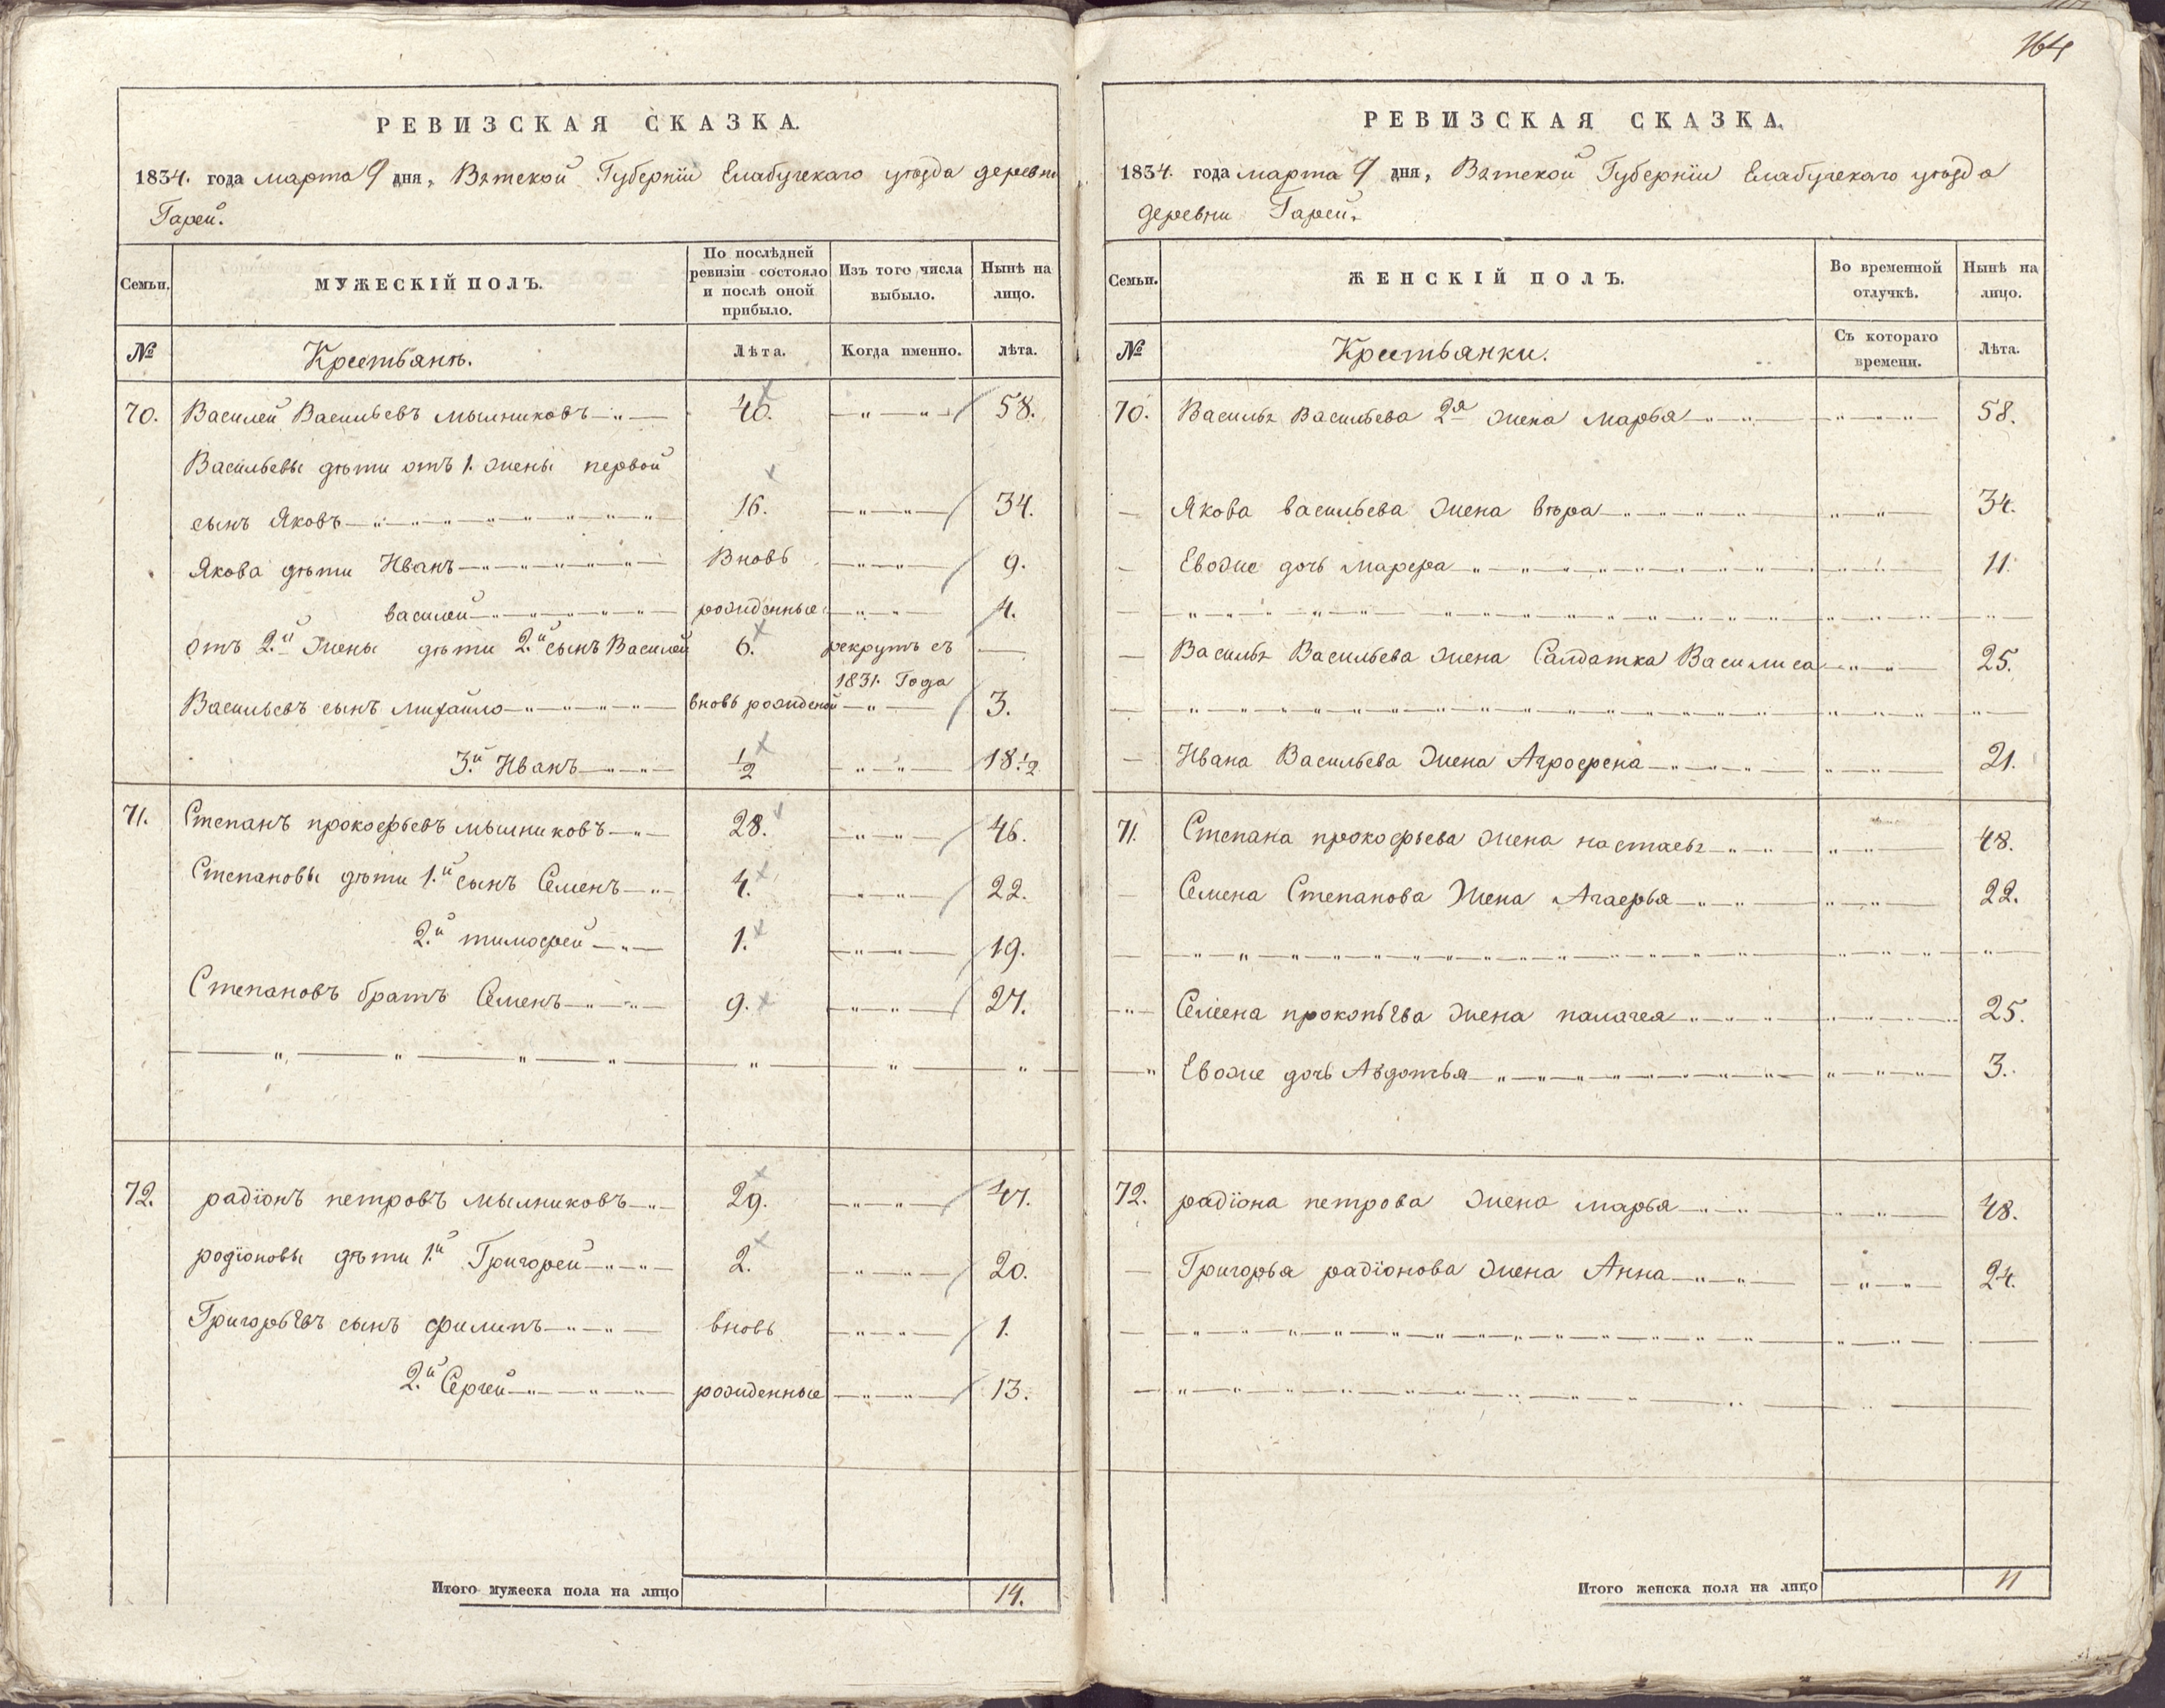 164
РЕВИЗСКАЯ СКАЗКА.
1834. года марта 9 дня, Вятской Губернïи Елабугскаго уѣзда деревни
Гарей.
Семьи. МУЖЕСКІЙ ПОЛЪ. По послѣдней ревизіи состояло и послѣ оной прибыло. Изъ того числа выбыло. Нынѣ на лицо.
№ Крестьянъ. Лѣта. Когда именно. лѣта.
70. Василей Васильевъ мыльниковъ 40. 58.
Васильевы дѣти отъ 1. жены первой
сынъ Яковъ 16. 34.
Якова дѣти Иванъ Вновь 9.
василей рожденные 4.
отъ 2.й Жены дѣти 2.й сынъ Василей 6. рекрутъ съ
1831. Года
Васильевъ сынъ михайло вновь рожденой 3.
3.й Иванъ 1/2 18 1/2
71. Степанъ прокофьевъ мыльниковъ 28. 46.
Степановы дѣти 1.й сынъ Семенъ 4. 22.
2.й тимофей 1. 19.
Степановъ братъ Семенъ 9. 27.
72. радïонъ петровъ мыльниковъ 29. 47.
родïоновы дѣти 1.й Григорей 2. 20.
Григорьевъ сынъ филипъ вновь 1.
2.й Сергей рожденные 13.
Итого мужеска пола на лицо 14.
РЕВИЗСКАЯ СКАЗКА.
1834. года марта 9 дня, Вятской Губернïи Елабугскаго уѣзда
деревни Гарей.
Семьи. ЖЕНСКІЙ ПОЛЪ. Во временной отлучкѣ. Нынѣ на лицо.
№ Крестьянки. Съ котораго времени. Лѣта.
70. Василья Васильева 2я жена марья 58.
Якова васильева жена вѣра 34.
Евоже дочь марфа 11.
Василья Васильева жена Салдатка Василиса 25.
Ивана Васильева жена Агрофена 21.
71. Степана прокофьева жена настасья 48.
Семена Степанова Жена Агафья 22.
Семена прокопьева жена палагея 25.
Евоже дочь Авдотья 3.
72. радïона петрова жена марья 48.
Григорья радïонова жена Анна 24.
Итого женска пола на лицо 11